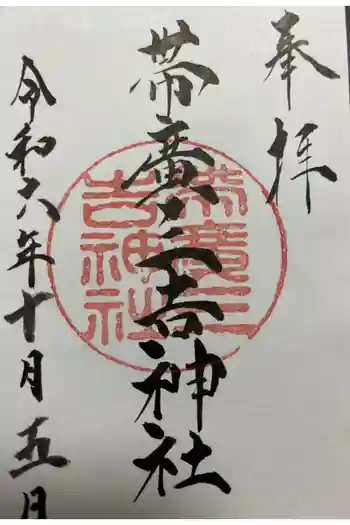 奉拝
帯廣三吉神社
令和六年十月五日
帯廣三
吉神社